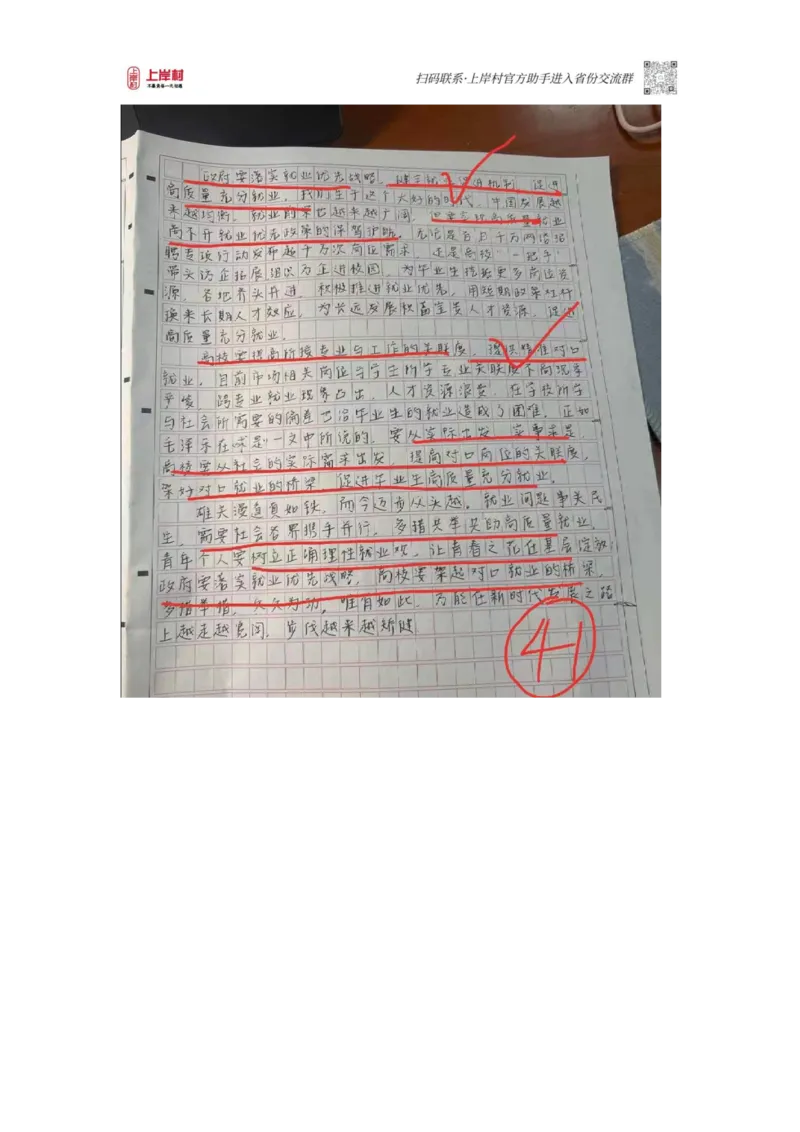 上岸村
上岸村
不辜负每一代考公人
扫码联系·上岸村官方助手进入省份交流群
政府要落实就业优先战略,建立机制,促进
高质量充分就业。我们生于这个大好的时代,中国发展越
来越均衡,就业的渠道越来越广阔,但要实现高质量就业
离不开就业优先政策的保驾护航。无论是百日千万网络招
聘专项行动发布超千万次岗位需求,还是高校“一把手”
带头访企拓展组织万企进校园,为毕业生挖掘更多岗位资
源,各地齐头并进,积极推进就业优先,用短期政策杠杆
换来长期人才效应,为长远发展积蓄宝贵人才资源,促进
高质量充分就业。
高校要提高所授专业与工作的关联度,提供精准对口
就业。目前市场相关岗位与学生所学专业关联度不高现象
严峻,跨专业就业现象凸出,人才资源浪费,在学校所学
与社会所需要的偏差也给毕业生的就业造成了困难。正如
毛泽东在《》一文中所说的,要从实际出发,实事求是,
高校要从社会的实际需求出发,提高对口岗位的关联度,
架好对口就业的桥梁,促进毕业生高质量充分就业。
雄关漫道真如铁,而今迈步从头越。就业问题事关民
生,需要社会各界携手并行,多措共举奖助高质量就业。
青年个人要树立正确理性就业观,让青春之花在基层绽放;
政府要落实就业优先战略,高校要架起对口就业的桥梁,
多措举措,久久为功。唯有如此,方能在新时代发展之路
上越走越宽阔,步伐越来越矫健。
41